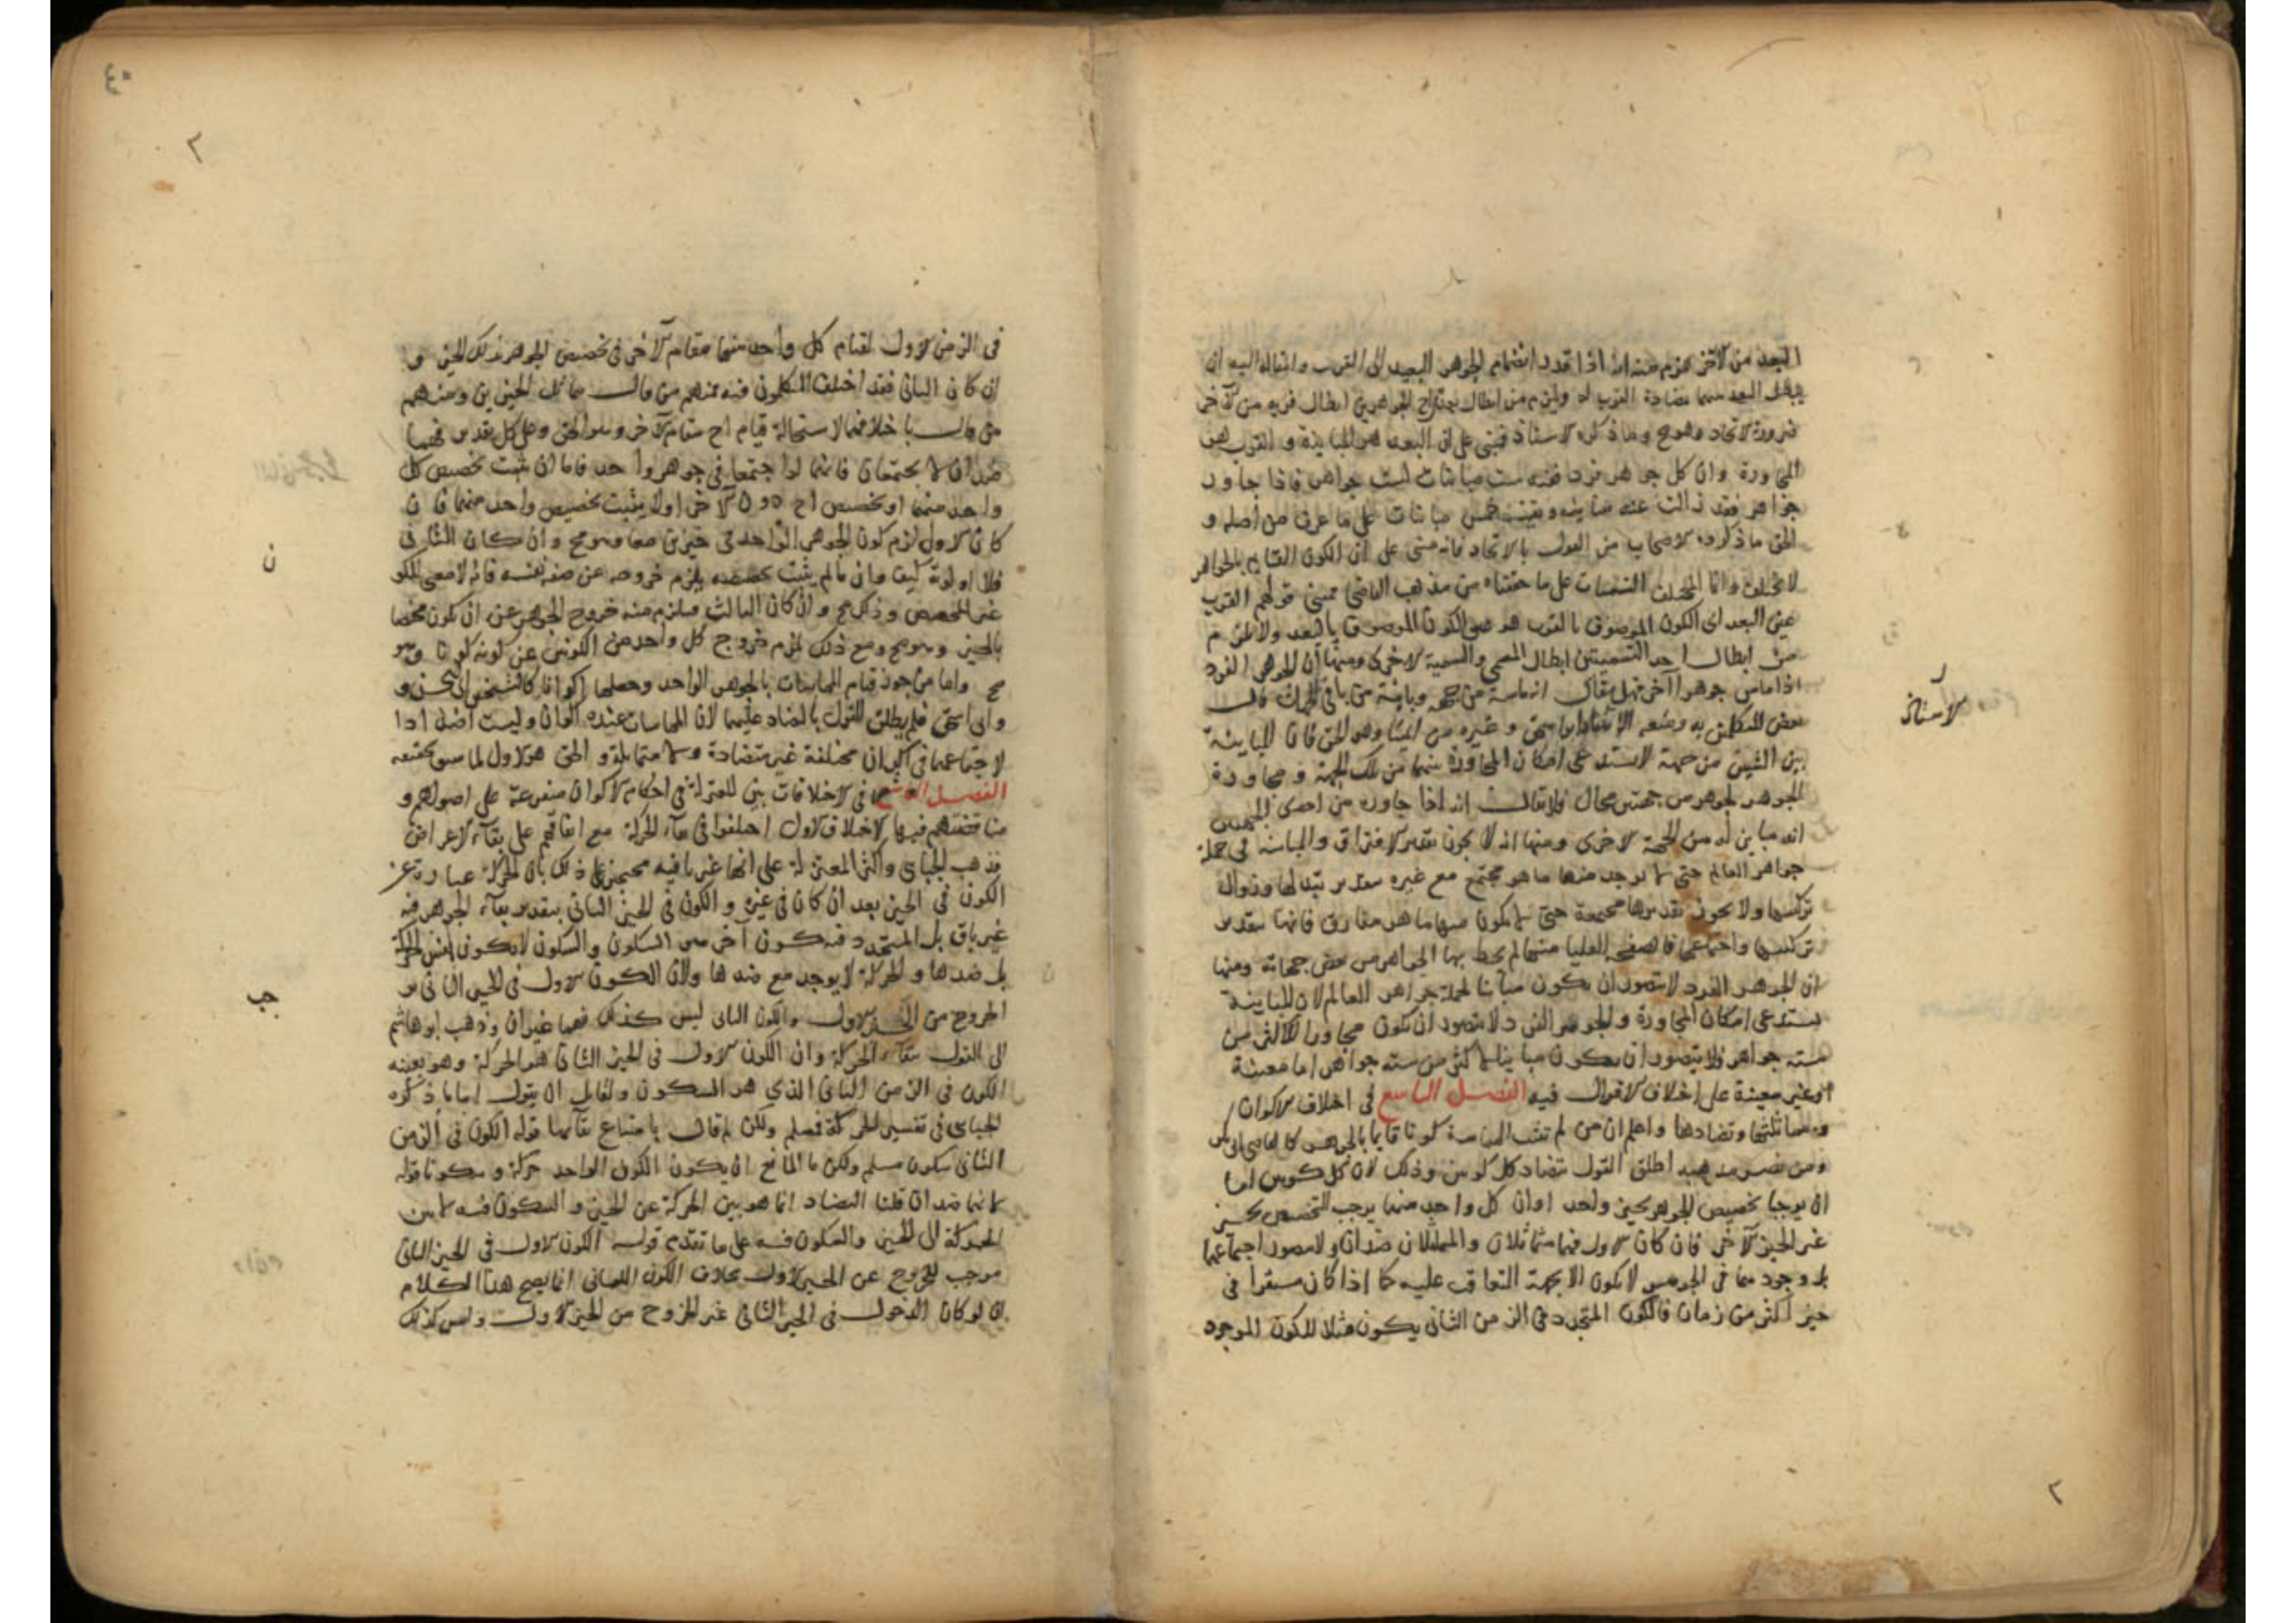 البعد من الآخر يلزم منه انه اذا قدر انضمام الجوهر البعيد الى القرب وانتقاله اليه ان
يبطل البعد بينهما مضادة القرب له ويلزم من ابطال الجوهرين ابطال قربه من الآخر
ضرورة الاتحاد وهو مح وما ذكره الاستاذ فمبنى على ان البعد هو المباينة و القرب هو
المجاورة وان كل جوهر فرد فيه ست مباينات لست جواهر فاذا جاور
جواهر فقد زالت عنه مباينه وبقيت خمس مباينات على ما عرف من اصله و
الحق ما ذكره الاصحاب من القول بالاتحاد فانه مبنى على ان الكون القايم بالجواهر
لا يختلف وانما المختلف التسميات على ما حققناه من مذهب القاضى فمعنى قولهم القرب
عين البعد اى الكون الموصوف بالقرب هو عين الكون الموصوف بالبعد ولا يلزم
من ابطال احد التسميتين ابطال المسمى والتسمية الاخرى ومنها ان الجوهر الفرد
اذا ماس جوهرا آخر فهل يقال انه ماسه من جهة وباينه من باقى الجهات قال
بعض المتكلمين به ومنعه الاستاذ ابو اسحق و غيره من ائمتنا وهو الحق فان المباينة
بين الشيئين من جهة لاستدعى امكان المجاورة بينهما من تلك الجهة و مجاورة
الجوهر لجوهر من جهتين محال فلا يقال انه اذا جاوره من احدى الجهتين
انه مباين له من الجهة الاخرى ومنها انه لا يجوز تقدير الافتراق والمباينة فى جملة
جواهر العالم حتى لا يوجد منها ما هو مجتمع مع غيره بتقدير تبدلها وزوال
تركبها ولا يجوز تقديرها مجتمعة حتى لا يكون فيها ما هو مفارق فانها بتقدير
تركيبها واجتماعها فالصفحة العليا منها لم يحط بها الجواهر من بعض جهاته ومنها
ان الجوهر الفرد لا يتصور ان يكون مباينا لجملة جواهر العالم لان المباينة
يستدعى امكان المجاورة والجوهر الفرد لا يتصور ان يكون مجاورا لاكثر من
سته جواهر فلا يتصور ان يكون مباينا لاكثر من سته جواهر اما معينة
او غير معينة على اختلاف الاقوال فيه الفصل التاسع فى اختلاف الاكوان
و مماثلتها وتضادها واعلم ان من لم يثبت المماسة كونا قايما بالجوهر كالقاضى ابى بكر
ومن نصر مذهبه اطلق القول بتضاد كل كونين وذلك لان كل كونين اما
ان يوجبا تخصيص الجوهر بحيز واحد او ان كل واحد منهما يوجب التخصص بحيز
غير الحيز الآخر فان كان الاول فهما متماثلان والمتماثلان ضدان ولا يتصور اجتماعهما
بل وجودهما فى الجوهر لا يكون الا بجهة التعاقب عليه كما اذا كان مستقرا فى
حيز اكثر من زمان فالكون المتجدد فى الزمن الثانى يكون مثلا للكون الموجود
الاستاذ
٢
٤٠
٢
فى الزمن الاول لقيام كل واحد منهما مقام الآخر فى تخصيص الجوهر بذلك الحيز و
ان كان الثانى فقد اختلف المتكلمون فيه فمنهم من قال بتماثل الحيزين ومنهم
من قال باختلافهما لاستحالة قيام احدهما مقام الآخر وهو الحق وعلى كل تقدير فهما
ضدان لا يجتمعان فانهما لو اجتمعا فى جوهر واحد فاما ان يثبت تخصيص كل
واحد منهما او تخصيص احدهما دون الآخر او لا يثبت تخصيص واحد منهما فان
كان الاول لزم كون الجوهر الواحد فى حيزين معا وهو مح وان كان الثانى
فلا اولوية كيف وان ما لم يثبت تخصيصه يلزم خروجه عن صفة نفسه فانه لا معنى للكون
غير المخصص وذلك مح وان كان الثالث فيلزم منه خروج الجوهر عن ان يكون مختصا
بالحيز وهو مح ومع ذلك يلزم خروج كل واحد من الكونين عن كونه كونا وهو
مح واما من جوز قيام المماسات بالجوهر الواحد وجعلها اكوانا كالشيخ ابى الحسن و
وابى اسحق فلم يطلق القول بالتضاد عليهما لان المماسات عنده اكوان وليست اضدادا
لاجتماعها فهى اكوان مختلفة غير متضادة ولا متماثلة و الحق هو الاول لما سبق تحقيقه
الفصل العاشر فى الاختلافات بين المعتزلة فى احكام الاكوان متفرعة على اصولهم و
مناقضتهم فيها الاختلاف الاول اختلفوا فى بقآء الحركة مع اتفاقهم على بقآء الاعراض
فذهب الجبائى واكثر المعتزلة على انها غير باقيه محتجين على ذلك بان الحركة عبارة عن
الكون فى الحيز بعد ان كان فى غيره و الكون فى الحيز الثانى بتقدير بقآء الجوهر فيه
غير باق بل المتجدد فيه كون آخر هو السكون والسكون لا يكون نفس الحركة
بل ضدها و الحركة لا يوجد مع ضدها ولان الكون الاول فى الحيز الثانى هو
الخروج من الحيز الاول والكون الثانى ليس كذلك فهما غيران وذهب ابو هاشم
الى القول ببقآء الحركة وان الكون الاول فى الحيز الثانى هو الحركة وهو بعينه
الكون فى الزمن الثانى الذى هو السكون ولقايل ان يقول اما ما ذكره
الجبائى فى تفسير الحركة فمسلم ولكن لم قال بامتناع بقآئها قوله الكون فى الزمن
الثانى سكون مسلم ولكن ما المانع ان يكون الكون الواحد حركة و سكونا قوله
لانهما ضدان قلنا التضاد انما هو بين الحركة عن الحيز و السكون فيه لا بين
الحركة الى الحيز والسكون فيه على ما تقدم قوله الكون الاول فى الحيز الثانى
موجب للخروج عن الحيز الاول بخلاف الكون الثانى انما يصح هذا الكلام
ان لو كان الدخول فى الحيز الثانى غير الخروج من الحيز الاول وليس كذلك
ن
جب